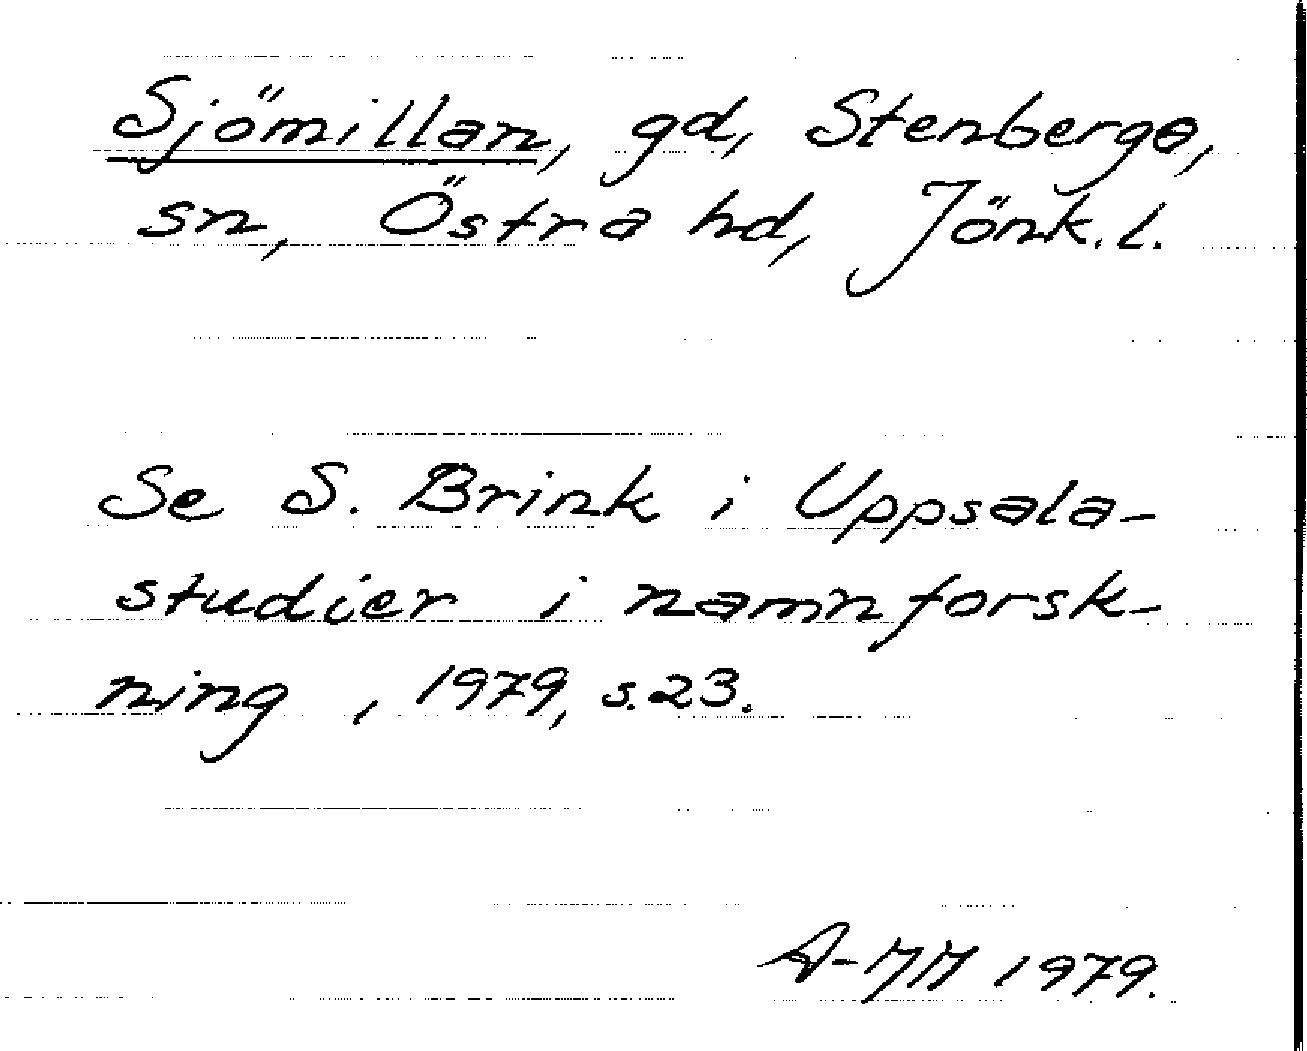 Sjömillan, gd, Stenberga,
sn, Östra hd, Jönk.l.
Se S. Brink i Uppsala-
studier i namnforsk-
ning , 1979, s.23.
A-MM 1979.